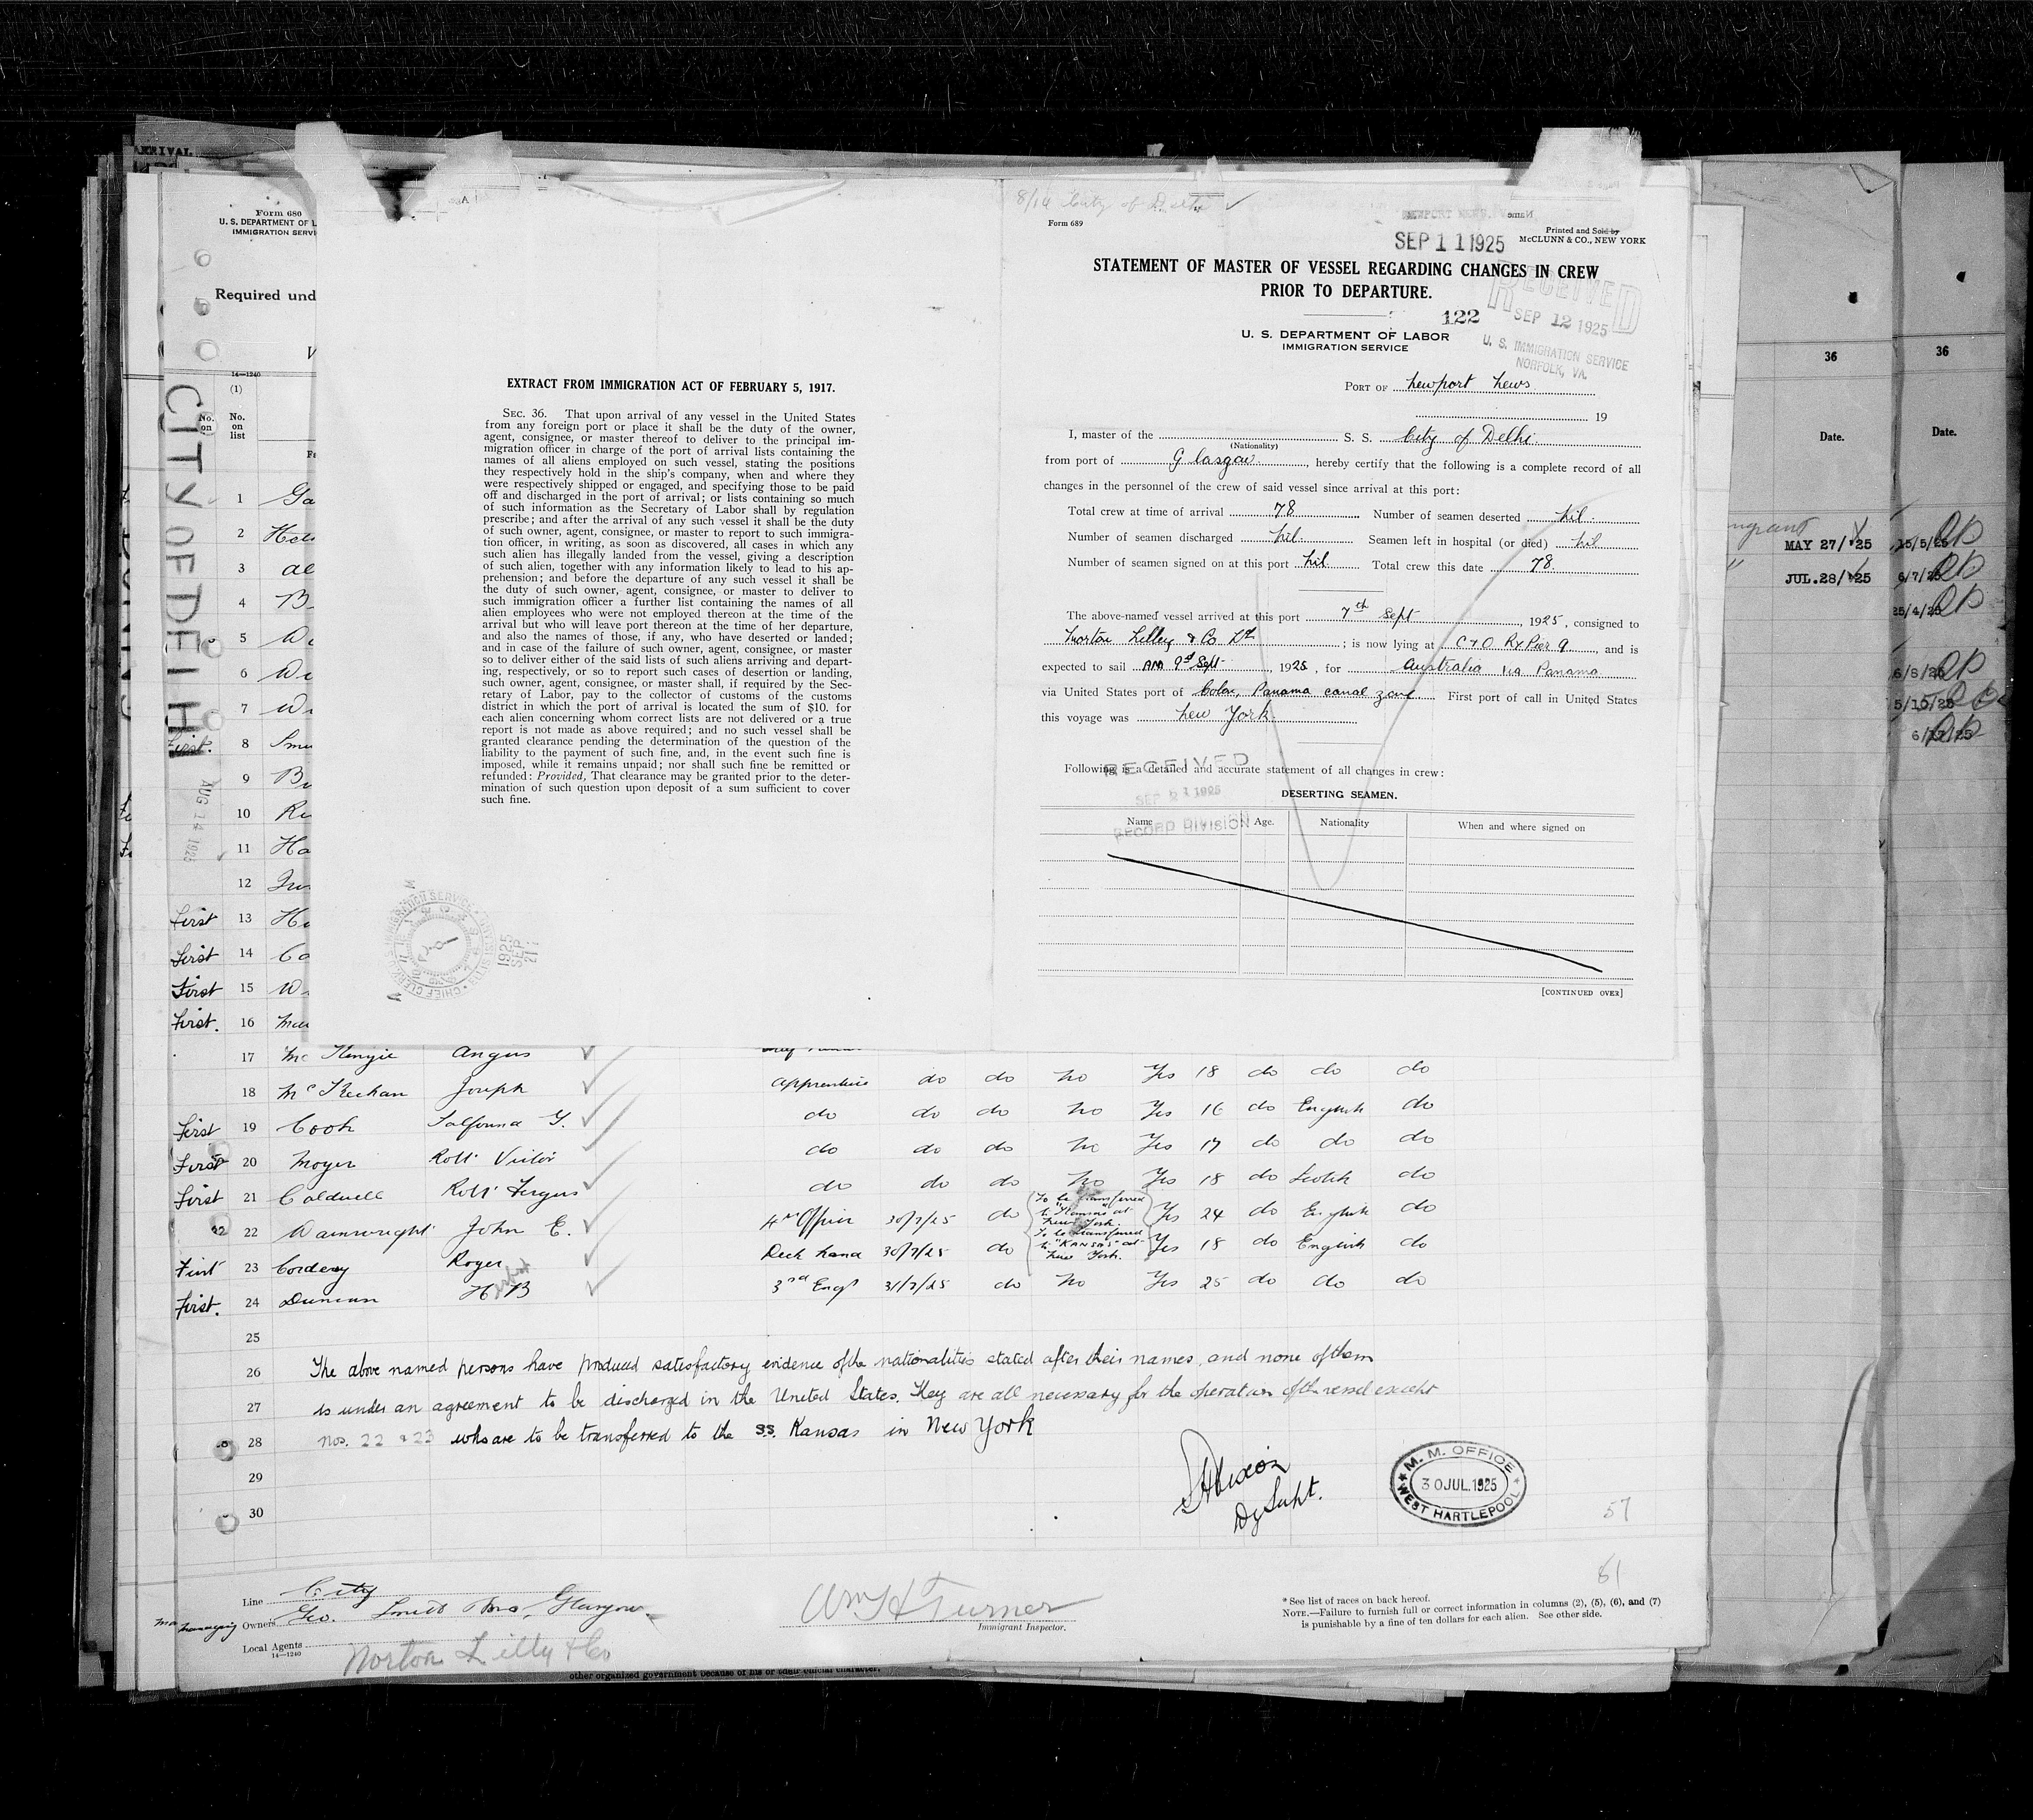 ARRIVAL
Form 680
U. S. DEPARTMENT OF L
IMMIGRATION SERVI
Required und
14—1240
(1)
No. on
No. on list
CITY OF DELHI
AUG 14 1925
1 Ga
2 Hel
3 al
4 B
5 W
6 Wi
7 W
First. 8 Smi
9 B
10 Ri
11 Ha
12
First 13 H
First 14 Co
First 15 W
First. 16 Mc
EXTRACT FROM IMMIGRATION ACT OF FEBRUARY 5, 1917.
SEC. 36. That upon arrival of any vessel in the United States
from any foreign port or place it shall be the duty of the owner,
agent, consignee, or master thereof to deliver to the principal im-
migration officer in charge of the port of arrival lists containing the
names of all aliens employed on such vessel, stating the positions
they respectively hold in the ship's company, when and where they
were respectively shipped or engaged, and specifying those to be paid
off and discharged in the port of arrival; or lists containing so much
of such information as the Secretary of Labor shall by regulation
prescribe; and after the arrival of any such vessel it shall be the duty
of such owner, agent, consignee, or master to report to such immigra-
tion officer, in writing, as soon as discovered, all cases in which any
such alien has illegally landed from the vessel, giving a description
of such alien, together with any information likely to lead to his ap-
prehension; and before the departure of any such vessel it shall be
the duty of such owner, agent, consignee, or master to deliver to
such immigration officer a further list containing the names of all
alien employees who were not employed thereon at the time of the
arrival but who will leave port thereon at the time of her departure,
and also the names of those, if any, who have deserted or landed;
and in case of the failure of such owner, agent, consignee, or master
so to deliver either of the said lists of such aliens arriving and depart-
ing, respectively, or so to report such cases of desertion or landing,
such owner, agent, consignee, or master shall, if required by the Sec-
retary of Labor, pay to the collector of customs of the customs
district in which the port of arrival is located the sum of $10. for
each alien concerning whom correct lists are not delivered or a true
report is not made as above required; and no such vessel shall be
granted clearance pending the determination of the question of the
liability to the payment of such fine, and, in the event such fine is
imposed, while it remains unpaid; nor shall such fine be remitted or
refunded: Provided, That clearance may be granted prior to the deter-
mination of such question upon deposit of a sum sufficient to cover
such fine.
1925 SEP 21
8/14 City of Delhi
Form 689
NEWPORT NEWS,
SEP 11 1925
Name
Printed and Sold by
McCLUNN & CO., NEW YORK
STATEMENT OF MASTER OF VESSEL REGARDING CHANGES IN CREW
PRIOR TO DEPARTURE.
122
RECEIVED
SEP 12 1925
U. S. IMMIGRATION SERVICE
NORFOLK, VA.
U. S. DEPARTMENT OF LABOR
IMMIGRATION SERVICE
PORT OF Newport News
19
I, master of the (Nationality) S. S. City of Delhi
from port of Glasgow, hereby certify that the following is a complete record of all
changes in the personnel of the crew of said vessel since arrival at this port:
Total crew at time of arrival 78 Number of seamen deserted Nil.
Number of seamen discharged Nil. Seamen left in hospital (or died) Nil
Number of seamen signed on at this port Nil Total crew this date 78.
The above-named vessel arrived at this port 7th Sept, 1925, consigned to
Norton Lilley & Co Ld; is now lying at C & O Ry Pier 9, and is
expected to sail AM 9th Sept, 1925, for Australia via Panama
via United States port of Colon, Panama canal zone First port of call in United States
this voyage was New York.
Following is a detailed and accurate statement of all changes in crew:
RECEIVED
SEP 21 1925
RECORD DIVISION
DESERTING SEAMEN.
Name Age. Nationality When and where signed on
[CONTINUED OVER]
36
Date.
MAY 27/25
JUL.28/25
36
Date.
15/5/25
6/7/25
25/4/25
6/8/25
5/10/25
17 McKenzie Angus
18 McKechan Joseph Apprentice do do No Yes 18 do do do
First 19 Cook G. do do do No Yes 16 do English do
First 20 Moyer Robt Victor do do do No Yes 17 do do do
First 21 Caldwell Robt Fergus do do do No Yes 18 do Scotch do
22 Wainwright John E. 4th Officer 30/7/25 do To be transferred to "Kansas" at New York. Yes 24 do English do
First 23 Cordery Roger Deck hand 30/7/25 do To be transferred to "KANSAS" at New York. Yes 18 do English do
First. 24 Duncan H B 3rd Engr 31/7/25 do No Yes 25 do do do
25
26 The above named persons have produced satisfactory evidence of the nationalities stated after their names, and none of them
27 is under an agreement to be discharged in the United States. They are all necessary for the operation of the vessel except
28 nos. 22 & 23 who are to be transferred to the s.s. Kansas in New York
29
30
Dy Supt.
M. M. OFFICE
30 JUL. 1925
WEST HARTLEPOOL
57
61
Line City
Managing Owners Geo. Smith & Sons, Glasgow
Local Agents Norton Lilly & Co
14—1240
Wm H Turner
Immigrant Inspector.
* See list of races on back hereof.
NOTE.—Failure to furnish full or correct information in columns (2), (5), (6), and (7)
is punishable by a fine of ten dollars for each alien. See other side.
other organized government because of his or their official character.